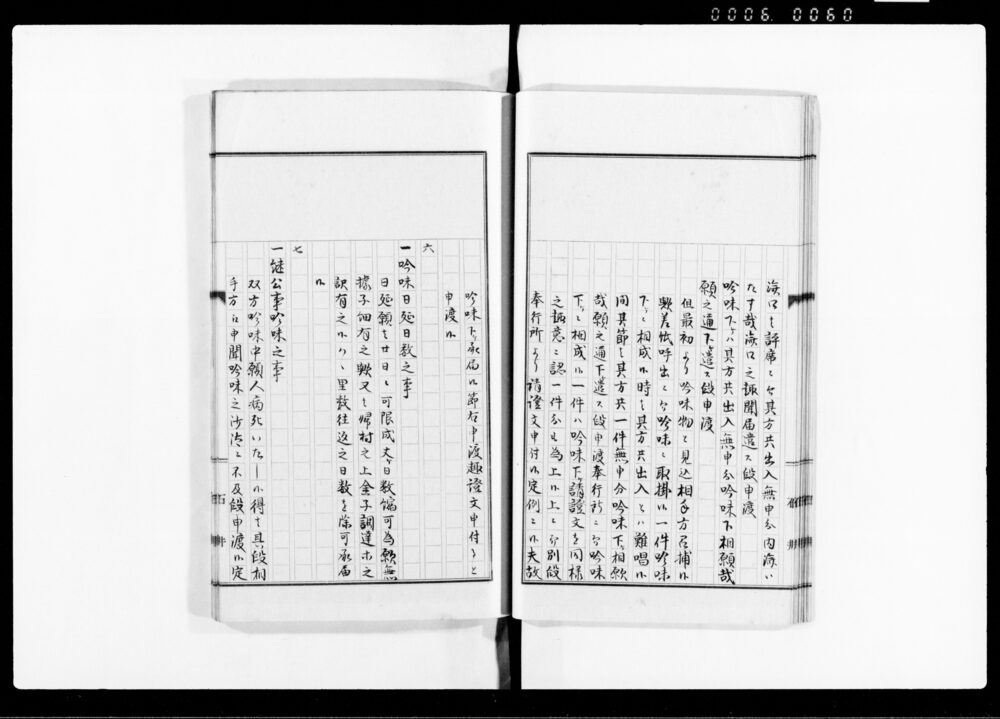 0006. 0060
海口者評席ニ而其方共出入無申分内海い
たす哉海口之趣聞届遣ス段申渡
吟味下ケハ其方共出入無申分吟味下相願哉
願之通下ケ遣ス段申渡
但最初より吟味物と見込相手方召捕候
歟差紙呼出ニ而吟味ニ取掛候一件吟味
下ケニ相成候時者其方共出入とハ難唱候
間其節者其方共一件無申分吟味下ケ相願
哉願之通下ケ遣ス段申渡奉行所ニ而吟味
下ケニ相成候一件ハ吟味下ケ請證文を同様
之趣意ニ認一件分も為上候上ニ而別段
奉行所より請證文申付候定例ニ候夫故
吟味下ケ承届候節右申渡趣證文申付ると
申渡候
六
一吟味日延日数之事
日延願者廿日ニ可限成丈ケ日数縮可為願無
據子細有之歟又者帰村之上金子調達ホ之
訳有之候ハヽ里数往返之日数を除可承届
候
七
一継公事吟味之事
双方吟味中願人病死いたし候得者其段相
手方江申聞吟味之沙汰ニ不及段申渡候定